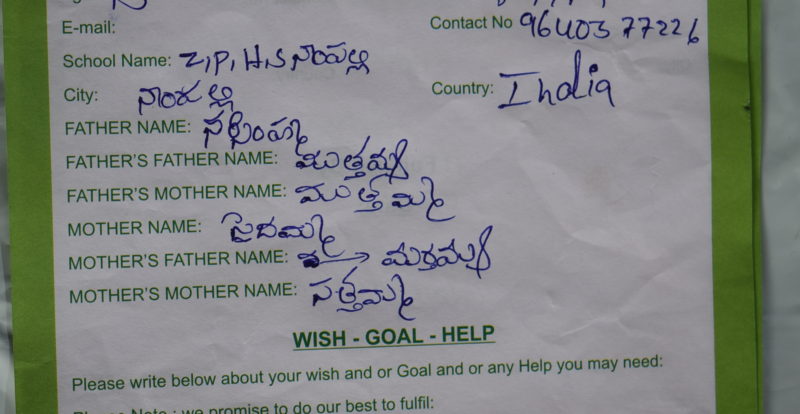 E-mail: Contact No 9640377226
School Name: Z.P.H.S నాంపల్లి
City: నాంపల్లి Country: India
FATHER NAME: నర్సింహ్మ
FATHER'S FATHER NAME: ముత్తయ్య
FATHER'S MOTHER NAME: ముత్తమ్మ
MOTHER NAME: సైదమ్మ
MOTHER'S FATHER NAME:
MOTHER'S MOTHER NAME: సత్తమ్మ
WISH - GOAL - HELP
Please write below about your wish and or Goal and or any Help you may need:
we promise to do our best to fulfil: